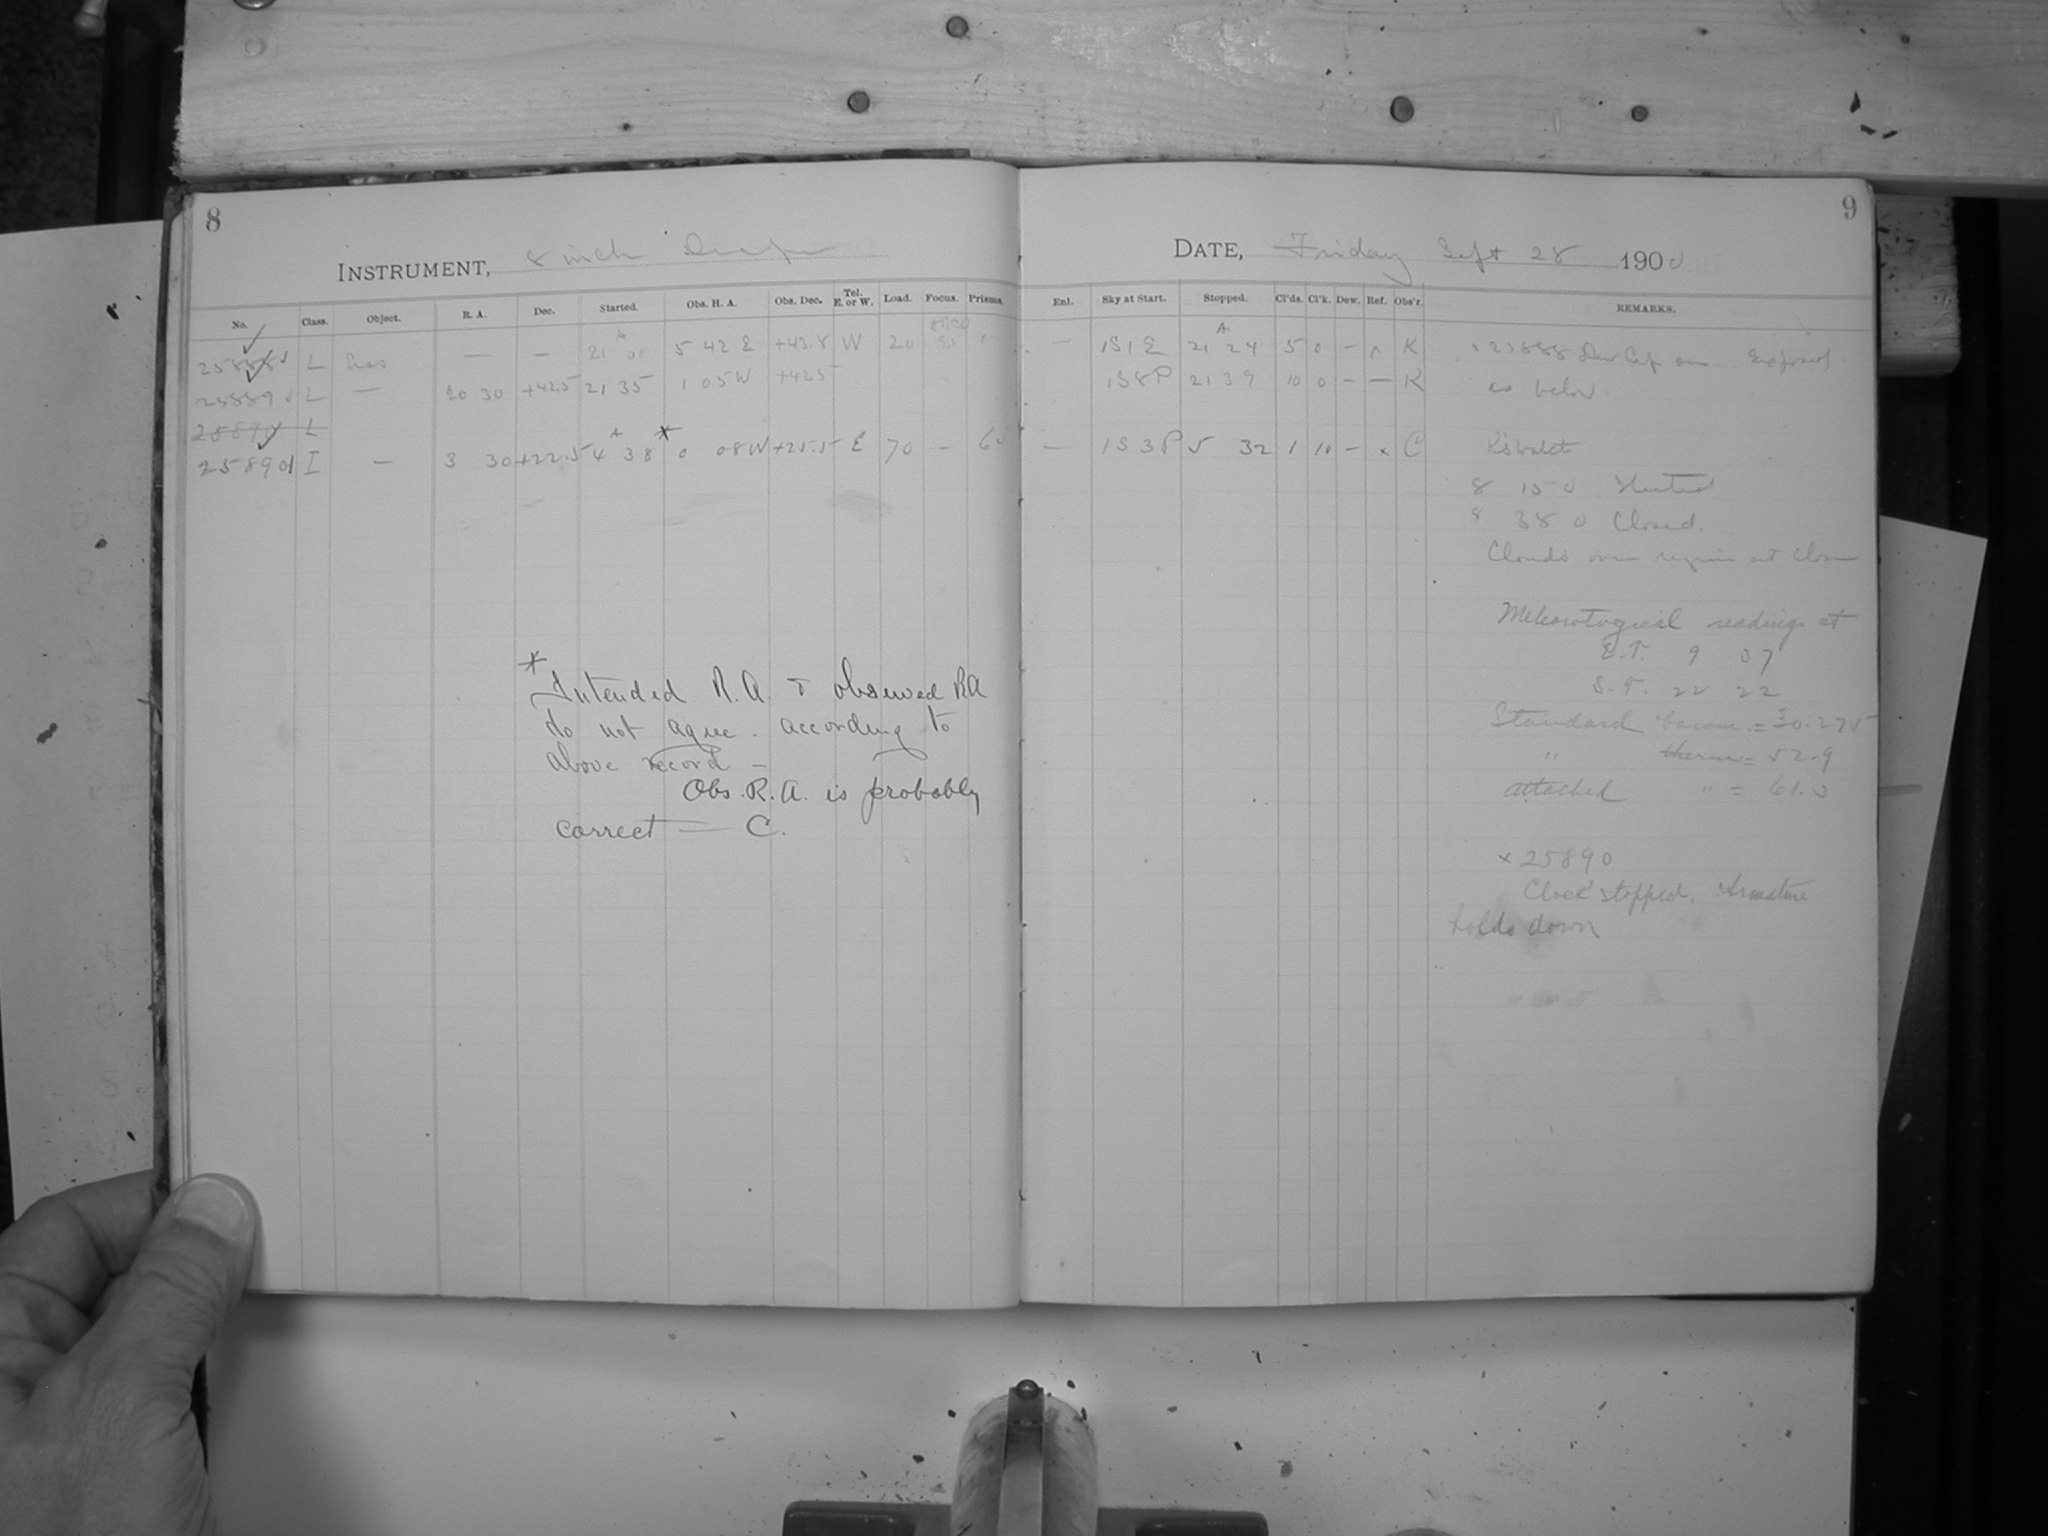 8
INSTRUMENT, 8 inch Draper
No. Class. Object. R. A. Dec. Started. Obs. H. A. Obs. Dec. Tel. E. or W. Load. Focus. Prisms.
25888 L — — 21 01 5 42 E +43.8 W 20
25889 L — 20 30 +42.5 21 35 1 05 W +42.5
25890 L
25890 I — 3 30 +22.5 4 38 * 0 08 W +25.5 E 70 — 60
*
Intended R.A. & observed RA
do not agree. according to
above record —
Obs. R.A. is probably
correct — C.
9
DATE, Friday Sept 28 1900
Enl. Sky at Start. Stopped. Cl'ds. Cl'k. Dew. Ref. Obs'r. REMARKS.
— 1S1E 21 24 5 0 — x K x 25888 Dew Cap on. Exposed
1S8P 21 39 10 0 — — K as below.
— 1S3P 5 32 1 10 — x C K's watch
8 15 0 Started
8 38 0 Closed.
Clouds over region at close
Meteorological readings at
E.T. 9 07
S.T. 22 22
Standard barom. = 30.275
" therm = 52.9
attached " = 61.0
x 25890
Clock stopped. Armature
holds down